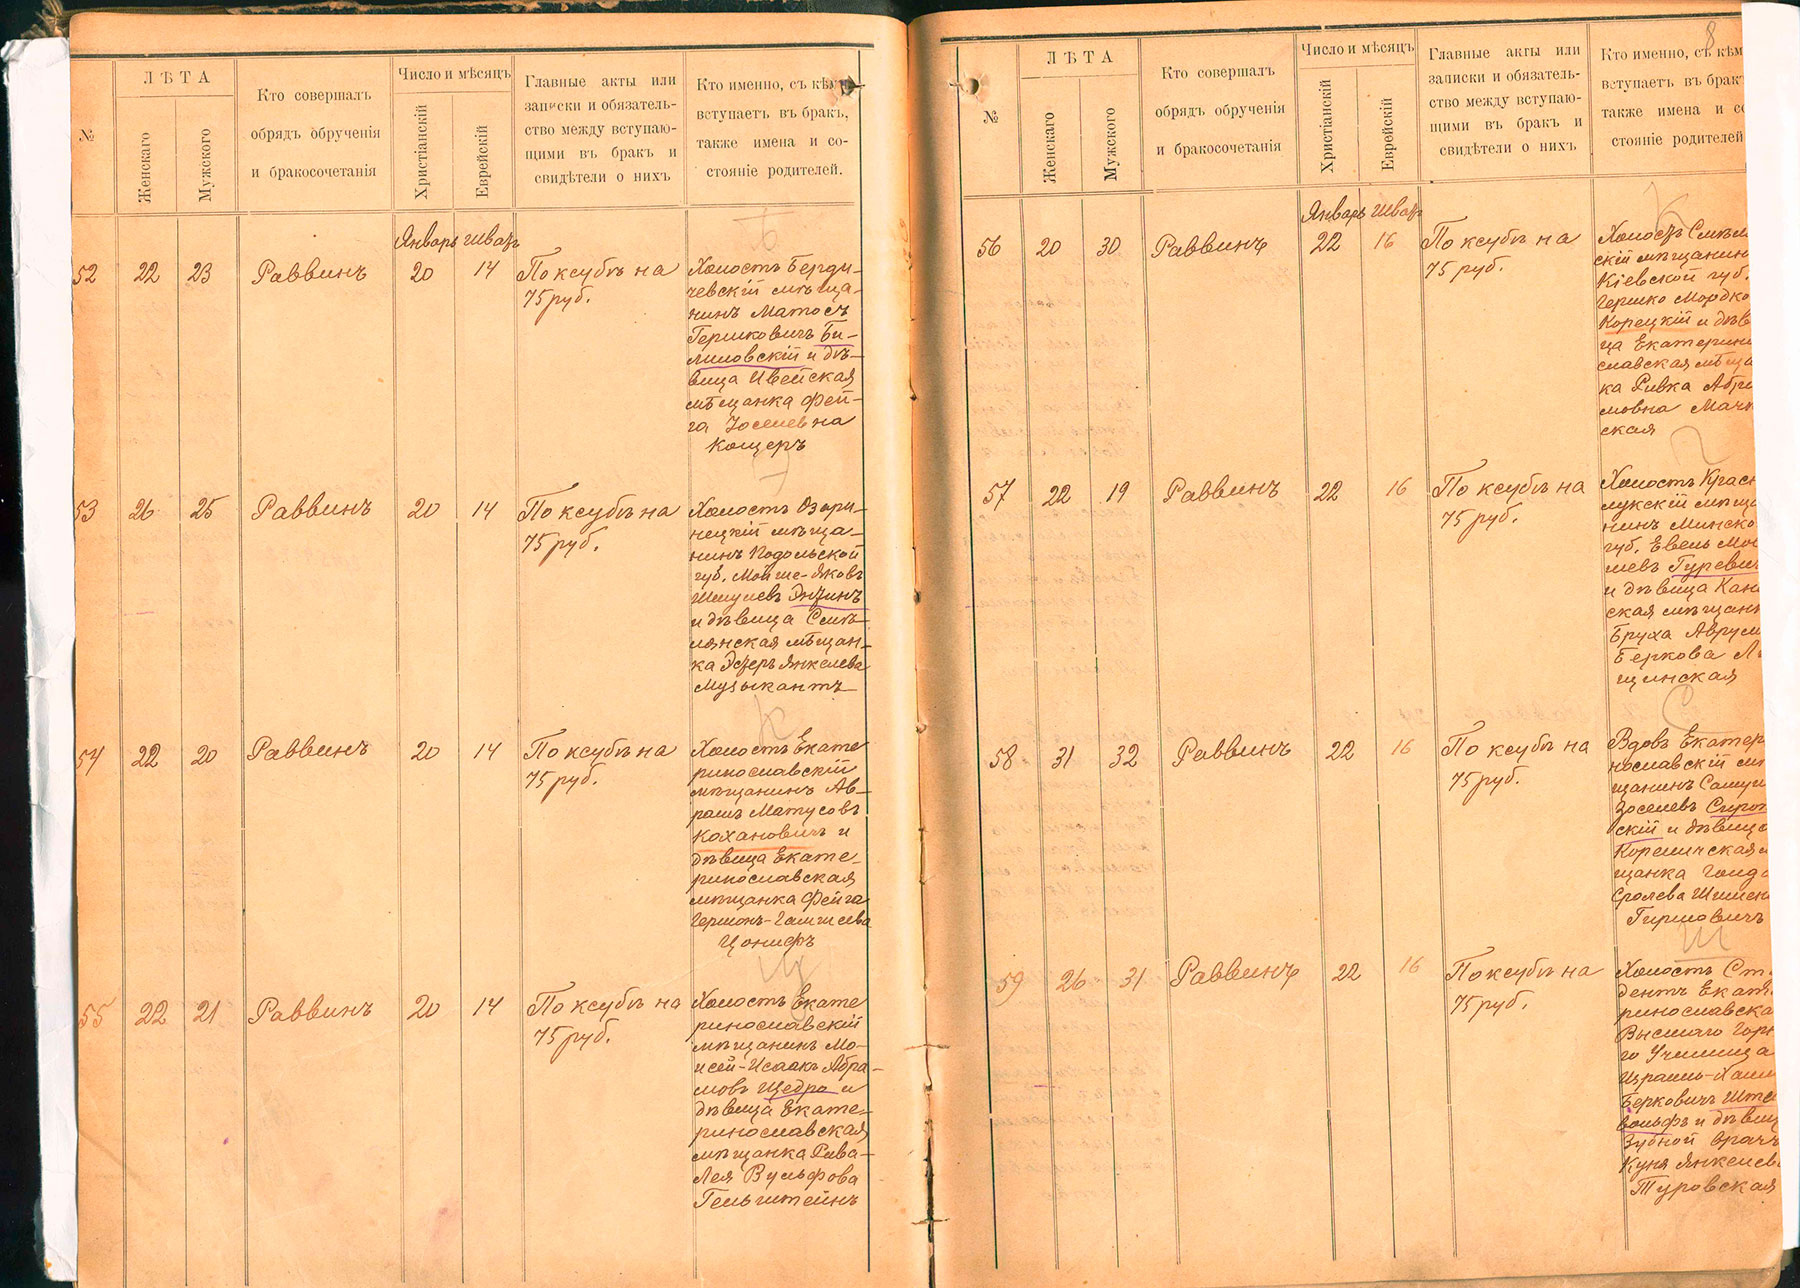 №
ЛѢТА
Женскаго
Мужского
Кто совершалъ
обрядъ обрученія
и бракосочетанія
Число и мѣсяцъ
Христіанскій
Еврейскій
Главные акты или
записки и обязатель-
ство между вступаю-
щими въ бракъ и
свидѣтели о нихъ
Кто именно, съ кѣмъ
вступаетъ въ бракъ,
также имена и со-
стояніе родителей.
Январь Шватъ
Б
52 22 23 Раввинъ 20 14 По ксубѣ на
75 руб.
Холостъ Берди-
чевскій мѣща-
нинъ Матосъ
Гершковичъ Би-
лиловскій и дѣ-
вица Ивейская
мѣщанка Фей-
га Іоселевна
Кощеръ
Э
53 26 25 Раввинъ 20 14 По ксубѣ на
75 руб.
Холостъ Озари-
нецкій мѣща-
нинъ Подольской
губ. Мойше-Яковъ
Шмулевъ Энтинъ
и дѣвица Смѣ-
лянская мѣщан-
ка Эстеръ Янкелева
Музыкантъ
К
54 22 20 Раввинъ 20 14 По ксубѣ на
75 руб.
Холостъ Екате
ринославскій
мѣщанинъ Ав-
рамъ Матусовъ
Кохановичъ и
дѣвица Екате-
ринославская
мѣщанка Фейга
Гершонъ-
Цонифъ
Щ
55 22 21 Раввинъ 20 14 По ксубѣ на
75 руб.
Холостъ Екате
ринославскій
мѣщанинъ Мо-
исей-Исаакъ Абра-
мовъ Щедро и
дѣвица Екате-
ринославская
мѣщанка Рива-
Лея Вульфова
Гельштейнъ
8
№
ЛѢТА
Женскаго
Мужского
Кто совершалъ
обрядъ обрученія
и бракосочетанія
Число и мѣсяцъ
Христіанскій
Еврейскій
Главные акты или
записки и обязатель-
ство между вступаю-
щими въ бракъ и
свидѣтели о нихъ
Кто именно, съ кѣм
вступаетъ въ брак
также имена и со
стояніе родителей
Январь Шватъ
К
56 20 30 Раввинъ 22 16 По ксубѣ на
75 руб.
Холостъ Смѣл
скій мѣщанин
Кіевской губ.
Гершко Мордко
Корецкій и дѣв
ца Екатерин
славская мѣща
ка Ривка Абра
мовна Мачк
ская
Г
57 22 19 Раввинъ 22 16 По ксубѣ на
75 руб.
Холостъ Красн
лукскій мѣща
нинъ Минско
губ. Евель Мов
шевъ Гуревич
и дѣвица Кан
ская мѣщанк
Бруха Аврум
Беркова
щинская
С
58 31 32 Раввинъ 22 16 По ксубѣ на
75 руб.
Вдовъ Екатер
нославскій мѣ
щанинъ Самуи
Зоселевъ Сирот
скій и дѣвица
Кореличская м
щанка Голда
Сролева
Гиршовичъ
Ш
59 26 31 Раввинъ 22 16 По ксубѣ на
75 руб.
Холостъ Сту
дентъ Екате
ринославска
Высшаго Горн
го Училища
Израиль-Хаим
Берковичъ Ште
вольфъ и дѣвиц
Зубной врачъ
Куня Янкелева
Туровская